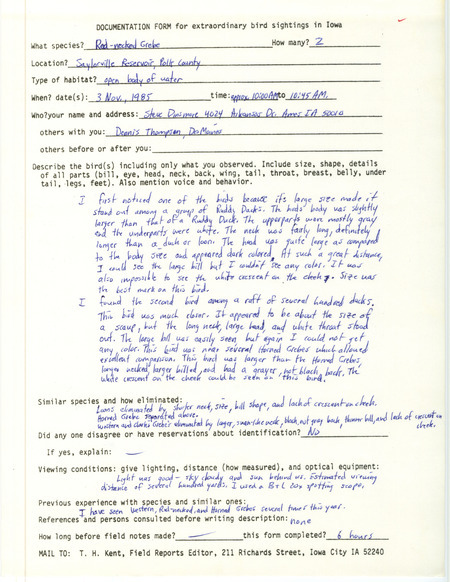 DOCUMENTATION FORM for extraordinary bird sightings in Iowa
What species? Red-necked Grebe How many? 2
Location? Saylorville Reservoir, Polk County
Type of habitat? open body of water
When? date(s): 3 Nov., 1985 time: approx. 10:00 AM to 10:45 AM.
Who? your name and address: Steve Dinsmore 4024 Arkansas Dr. Ames IA 50010
others with you: Dennis Thompson, Des Moines
others before or after you:
Describe the bird(s) including only what you observed. Include size, shape, details
of all parts (bill, eye, head, neck, back, wing, tail, throat, breast, belly, under
tail, legs, feet). Also mention voice and behavior.
I first noticed one of the birds because its large size made it
stand out among a group of Ruddy Ducks. The birds' body was slightly
larger than that of a Ruddy Duck. The upperparts were mostly gray
and the underparts were white. The neck was fairly long, definitely
longer than a duck or loon. The head was quite large as compared
to the body size and appeared dark colored. At such a great distance,
I could see the large bill but I couldn't see any color. It was
also impossible to see the white crescent on the cheek. Size was
the best mark on this bird.
I found the second bird among a raft of several hundred ducks.
This bird was much closer. It appeared to be about the size of
a scaup, but the long neck, large head, and white throat stood
out. The large bill was easily seen, but again I could not see
any color. This bird was near several Horned Grebes which allowed
excellent comparison. This bird was larger than the Horned Grebes,
longer necked, larger billed, and had a grayer, not black, back. The
white crescent on the cheek could be seen on this bird.
Similar species and how eliminated:
Loons eliminated by shorter neck, size, bill shape, and lack of crescent on cheek.
Horned Grebe separated above.
Western and Clark's Grebes eliminated by larger, snake-like neck, black, not gray back, thinner bill, and lack of crescent on
cheek.
Did any one disagree or have reservations about identification? No
If yes, explain: —
Viewing conditions: give lighting, distance (how measured), and optical equipment:
Light was good - sky cloudy and sun behind us. Estimated viewing
distance of several hundred yards. I used a B+L 20x spotting scope.
Previous experience with species and similar ones:
I have seen Western, Red-necked, and Horned Grebes several times this year.
References and persons consulted before writing description: none
How long before field notes made? — this form completed? 6 hours
MAIL TO: T. H. Kent, Field Reports Editor, 211 Richards Street, Iowa City IA 52240